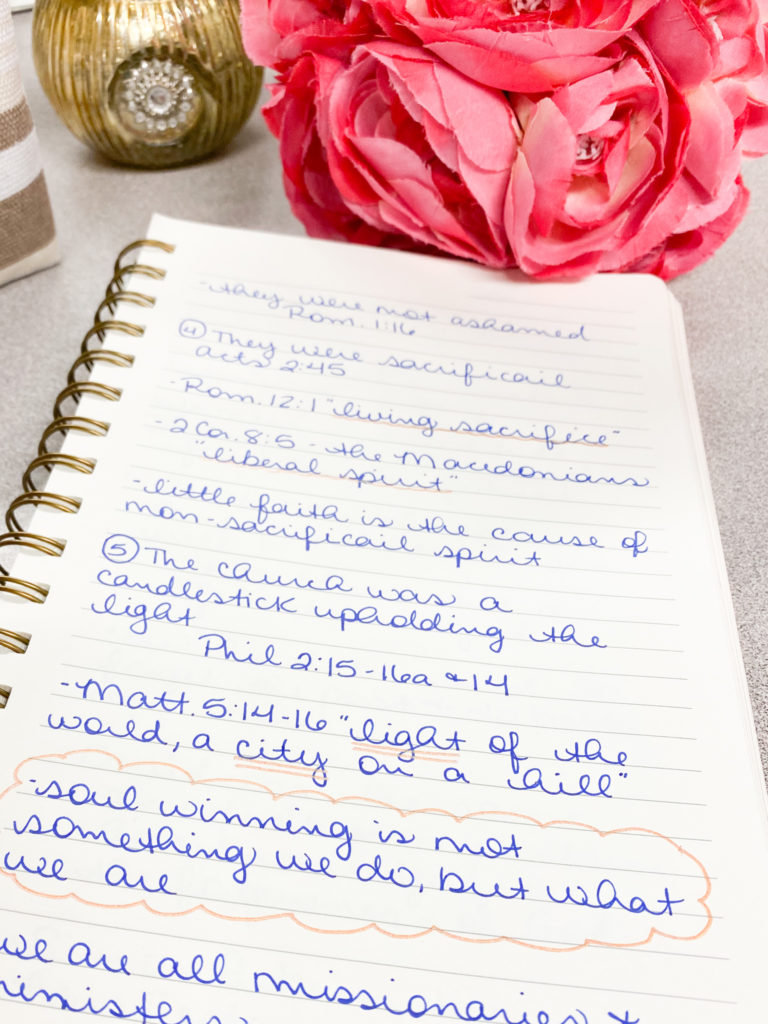 -they were not ashamed
Rom. 1:16
④ They were sacrificail
acts 2:45
-Rom. 12:1 "living sacrifice"
-2 Cor. 8:5 - the Macedonians
"liberal spirit"
-little faith is the cause of
non-sacrificail spirit
⑤ The church was a
candlestick upholding the
light
Phil 2:15-16a & 14
-Matt. 5:14-16 "light of the
world, a city on a hill"
-soul winning is not
something we do, but what
we are
we are all missionaries &